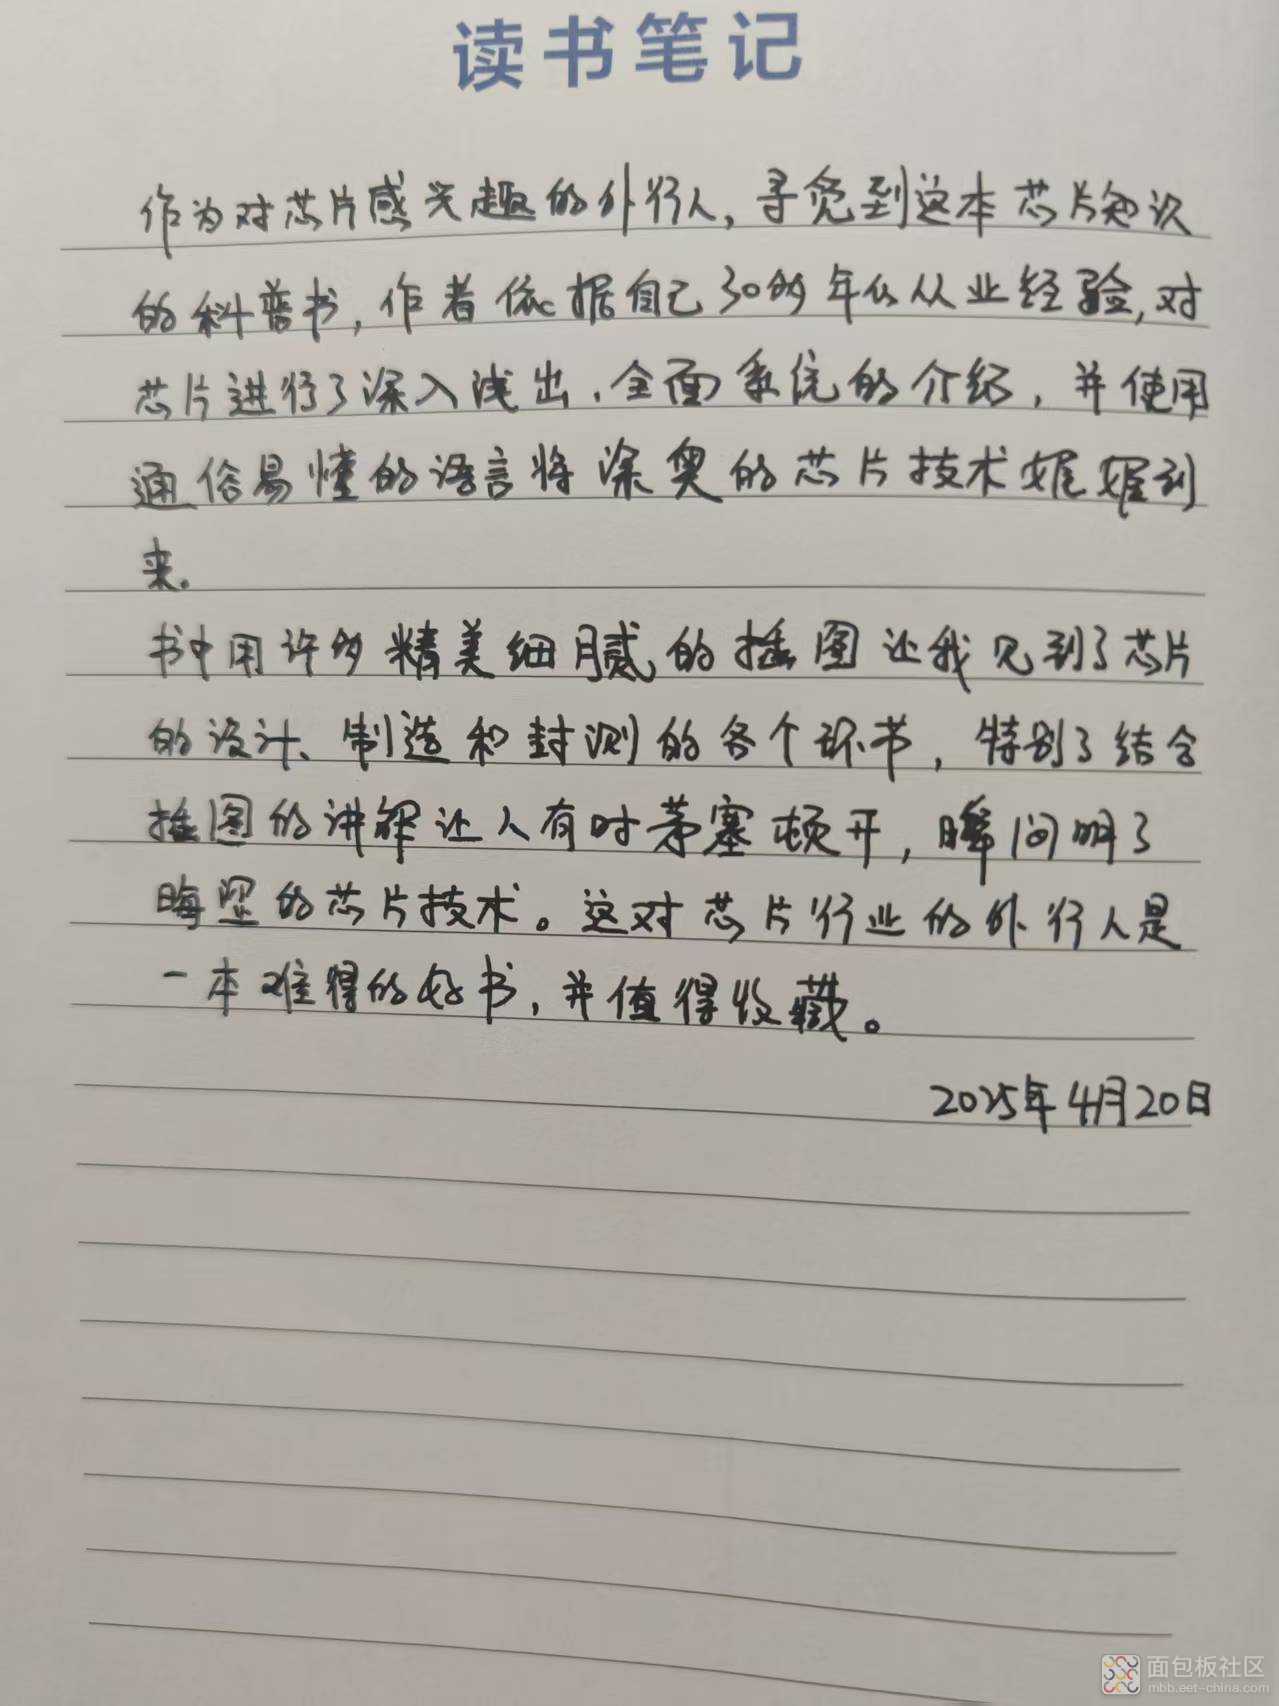 读书笔记
作为对芯片感兴趣的外行人，寻觅到这本芯片知识
的科普书，作者依据自己30多年的从业经验，对
芯片进行了深入浅出、全面系统的介绍，并使用
通俗易懂的语言将深奥的芯片技术娓娓到
来。
书中用许多精美细腻的插图让我见到了芯片
的设计、制造和封测的各个环节，特别了结合
插图的讲解让人有时茅塞顿开，瞬间明了
晦涩的芯片技术。这对芯片行业的外行人是
一本难得的好书，并值得收藏。
2025年4月20日
面包板社区
mbb.eet-china.com